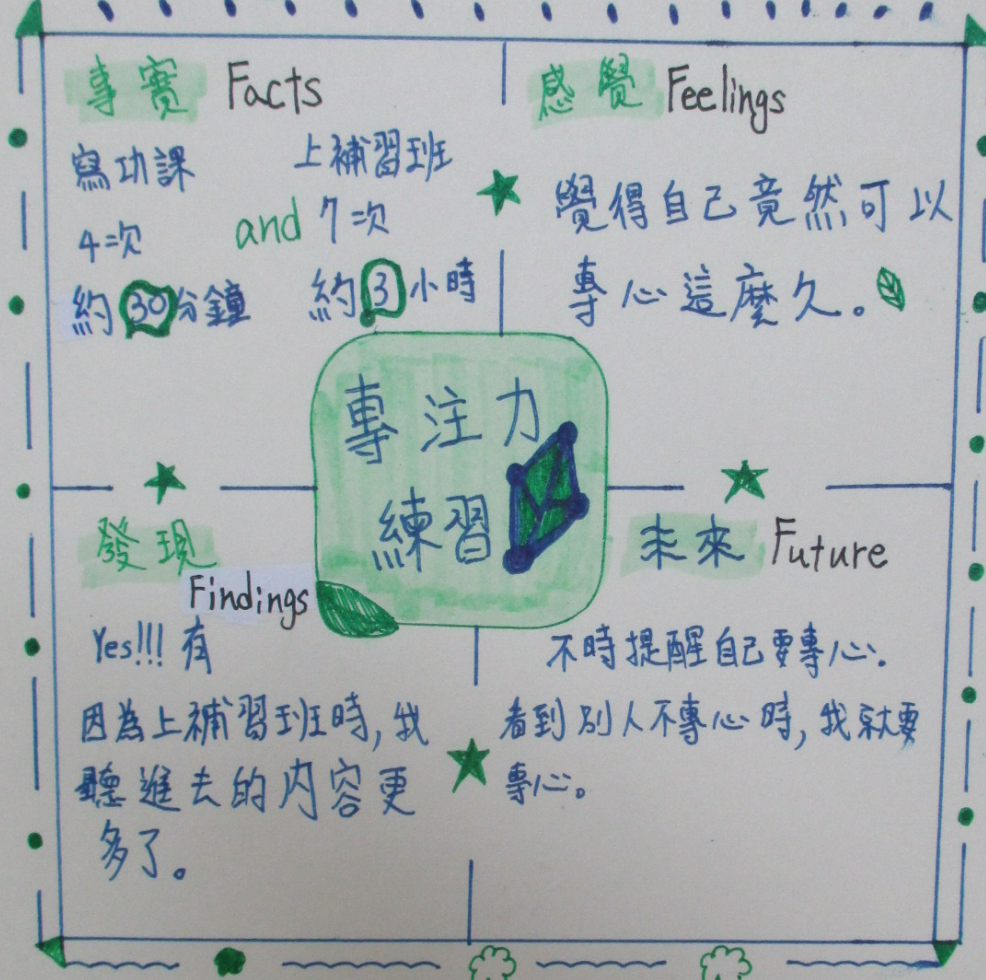 事實 Facts
寫功課
4次
約30分鐘
and
上補習班
7次
約3小時
感覺 Feelings
覺得自己竟然可以
專心這麼久。
專注力
練習
發現
Findings
Yes!!! 有
因為上補習班時,我
聽進去的内容更
多了。
未來 Future
不時提醒自己要專心.
看到別人不專心時,我就要
專心。